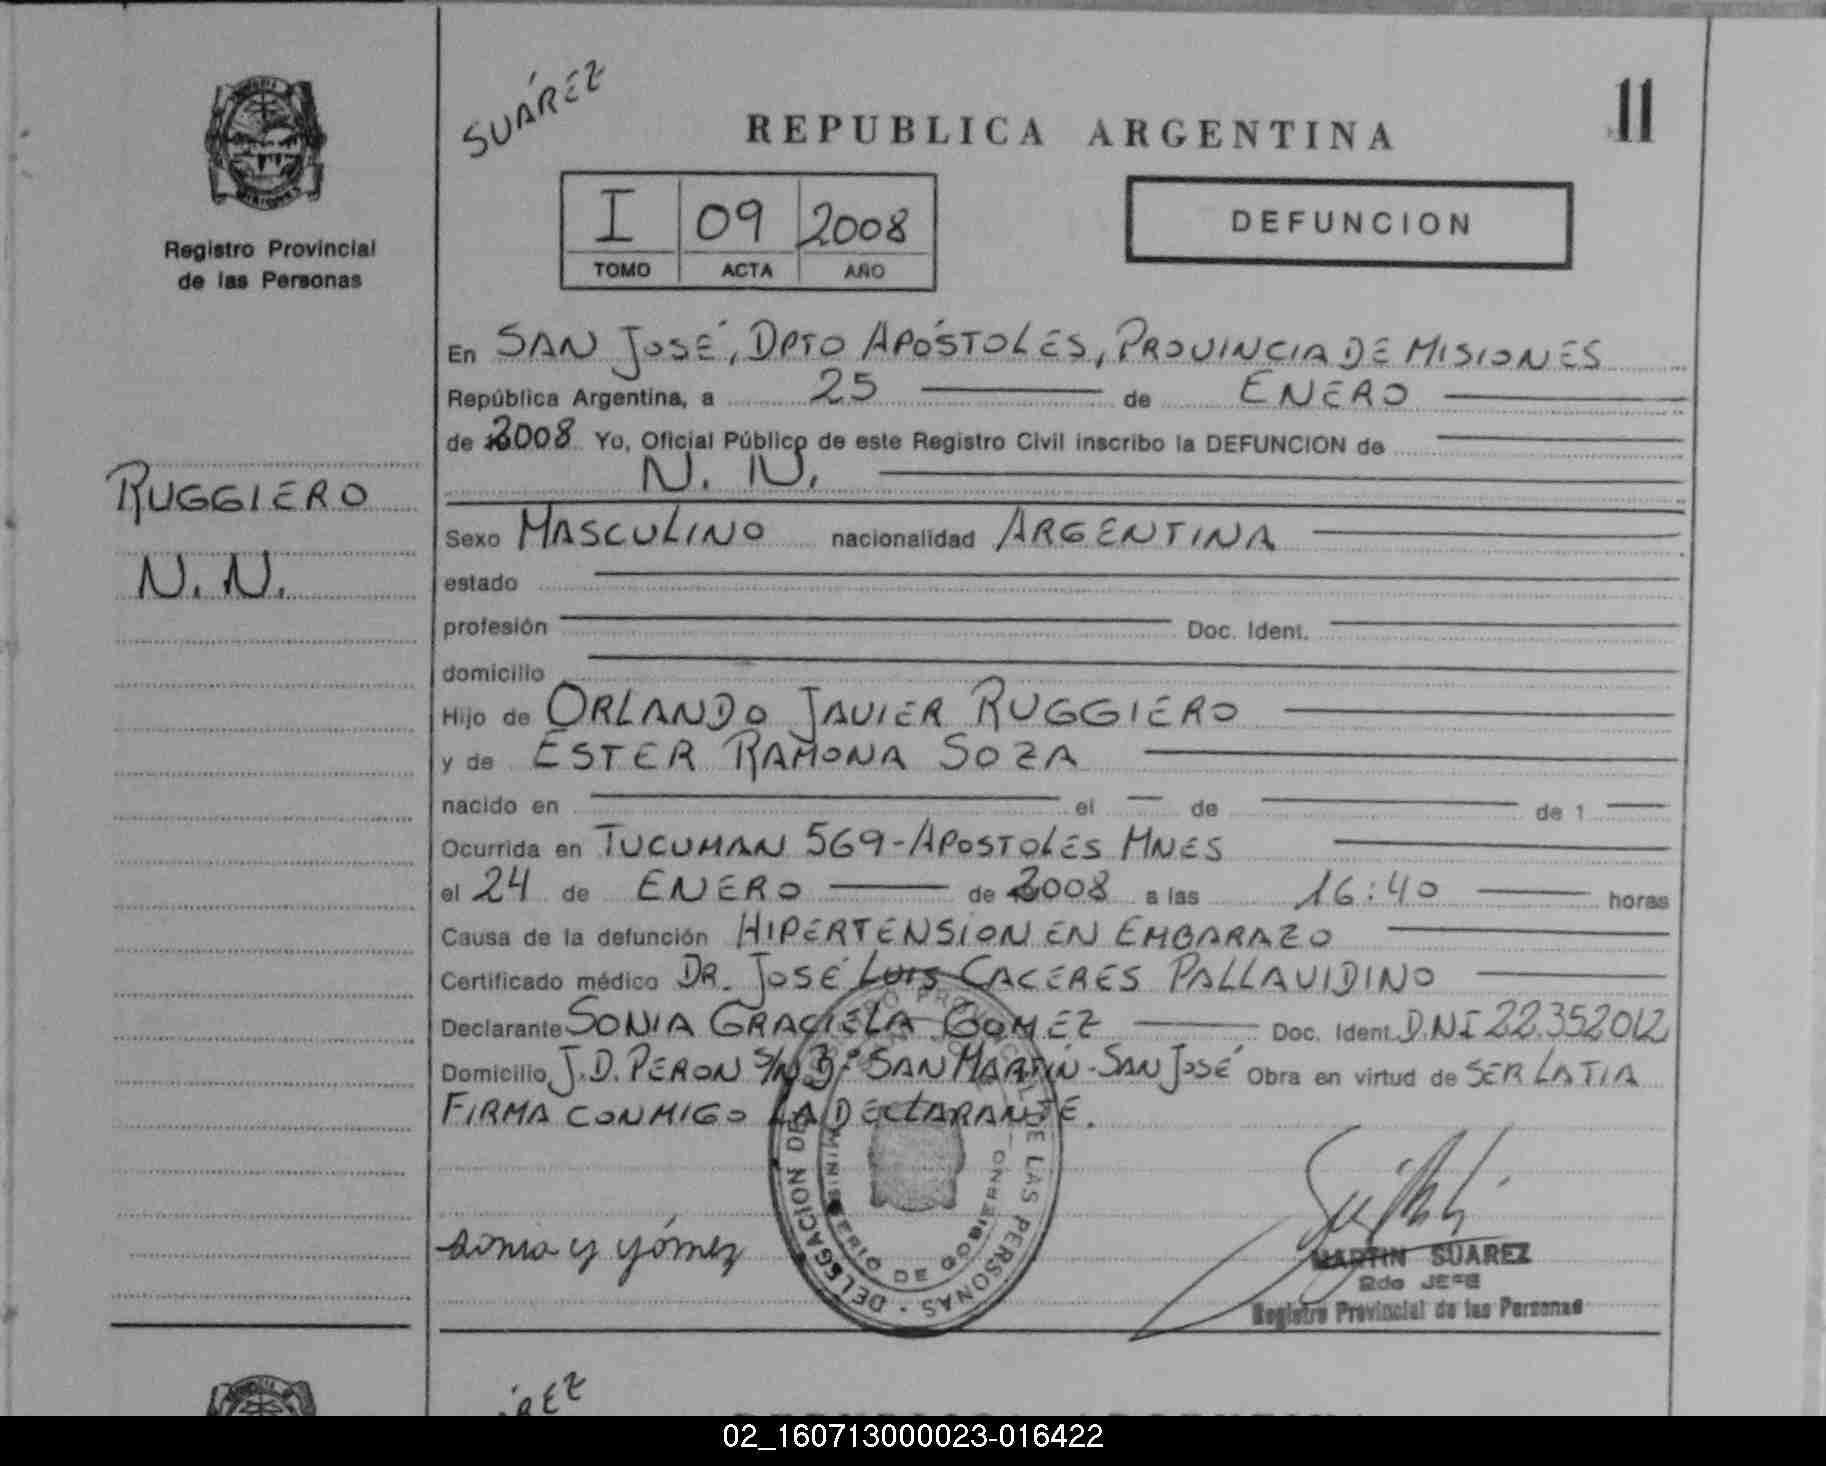 SUÁREZ
REPUBLICA ARGENTINA
11
Registro Provincial
de las Personas
I 09 2008
TOMO ACTA AÑO
DEFUNCION
En SAN JOSÉ, DPTO APÓSTOLES, PROVINCIA DE MISIONES
República Argentina, a 25 de ENERO
de 2008 Yo, Oficial Público de este Registro Civil inscribo la DEFUNCION de
N. N.
RUGGIERO
N. N.
Sexo MASCULINO nacionalidad ARGENTINA
estado
profesión Doc. Ident.
domicilio
Hijo de ORLANDO JAVIER RUGGIERO
y de ESTER RAMONA SOZA
nacido en el de de 1
Ocurrida en TUCUMAN 569-APOSTOLES MNES
el 24 de ENERO de 2008 a las 16:40 horas
Causa de la defunción HIPERTENSION EN EMBARAZO
Certificado médico DR. JOSÉ LUIS CACERES PALLAVIDINO
Declarante SONIA GRACIELA GOMEZ Doc. Ident. D.N.I 22.352012
Domicilio J.D. PERON S/N Bº SAN MARTIN-SAN JOSÉ Obra en virtud de SER LA TIA
FIRMA CONMIGO LA DECLARANTE.
DELEGACION DEL REGISTRO PROVINCIAL DE LAS PERSONAS
MINISTERIO DE GOBIERNO
sonia g gómez
MARTIN SUAREZ
2do JEFE
Registro Provincial de las Personas
02_160713000023-016422